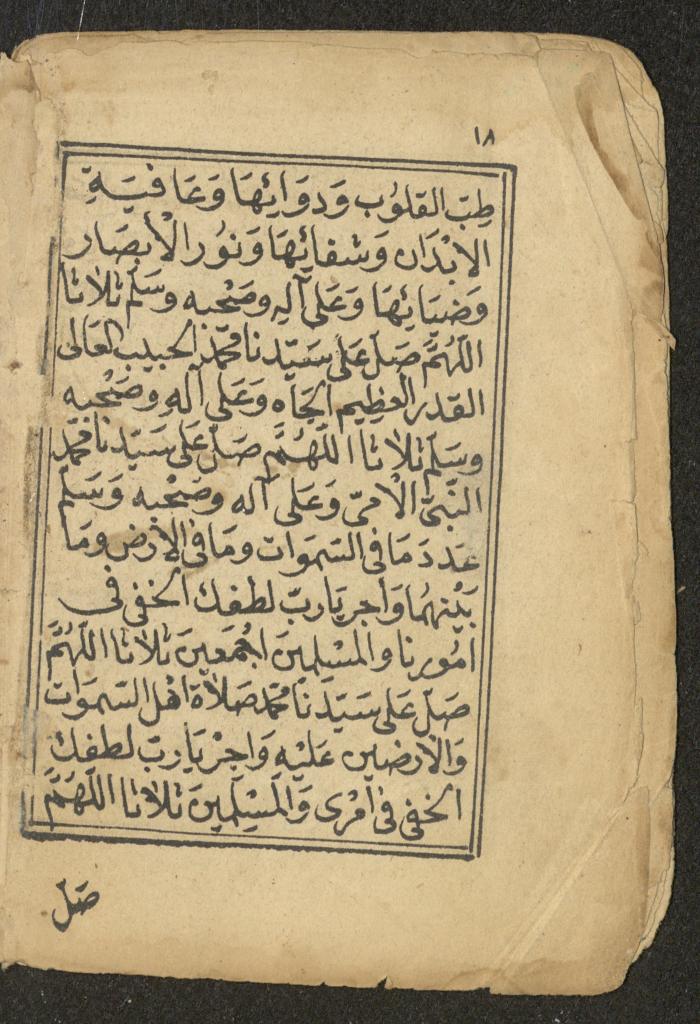 ١٨
طِبِّ القلوُب وَدوَائِهَا وَعَافيَةِ
الابْدَان وَشفائِهَا وَنوُر الْأبصَار
وَضيَائِهَا وَعَلى آلِهِ وصَحْبه وسَلّم ثلاثا
اللّهُمَّ صَلّ عَلى سَيّدنا محمّد الحبيب العَالى
القدر العظيم الجَاه وَعَلى آله وصَحْبه
وسَلّم ثلاثا اللّهُمَّ صَلّ عَلى سَيّدنا محمّد
النّبىّ الْامّىّ وَعَلى آله وصَحْبه وَسَلّم
عَدَدَ مَا فى السّموَات ومَا فى الارض ومَا
بَيْنهمُا وَاجر يَاربّ لطفك الخفى فى
امُورنا والمسْلِمينَ اجْمَعينَ ثلاثا اللّهُمَّ
صَلّ عَلى سَيّدنَا محمّد صَلاة اهْل السّموَات
وَالارَضين عَليْه وَاجرْ يَاربّ لطفك
الخفى فى امْرى وَالمسْلِمينَ ثلاثا اللّهُمَّ
صَلّ